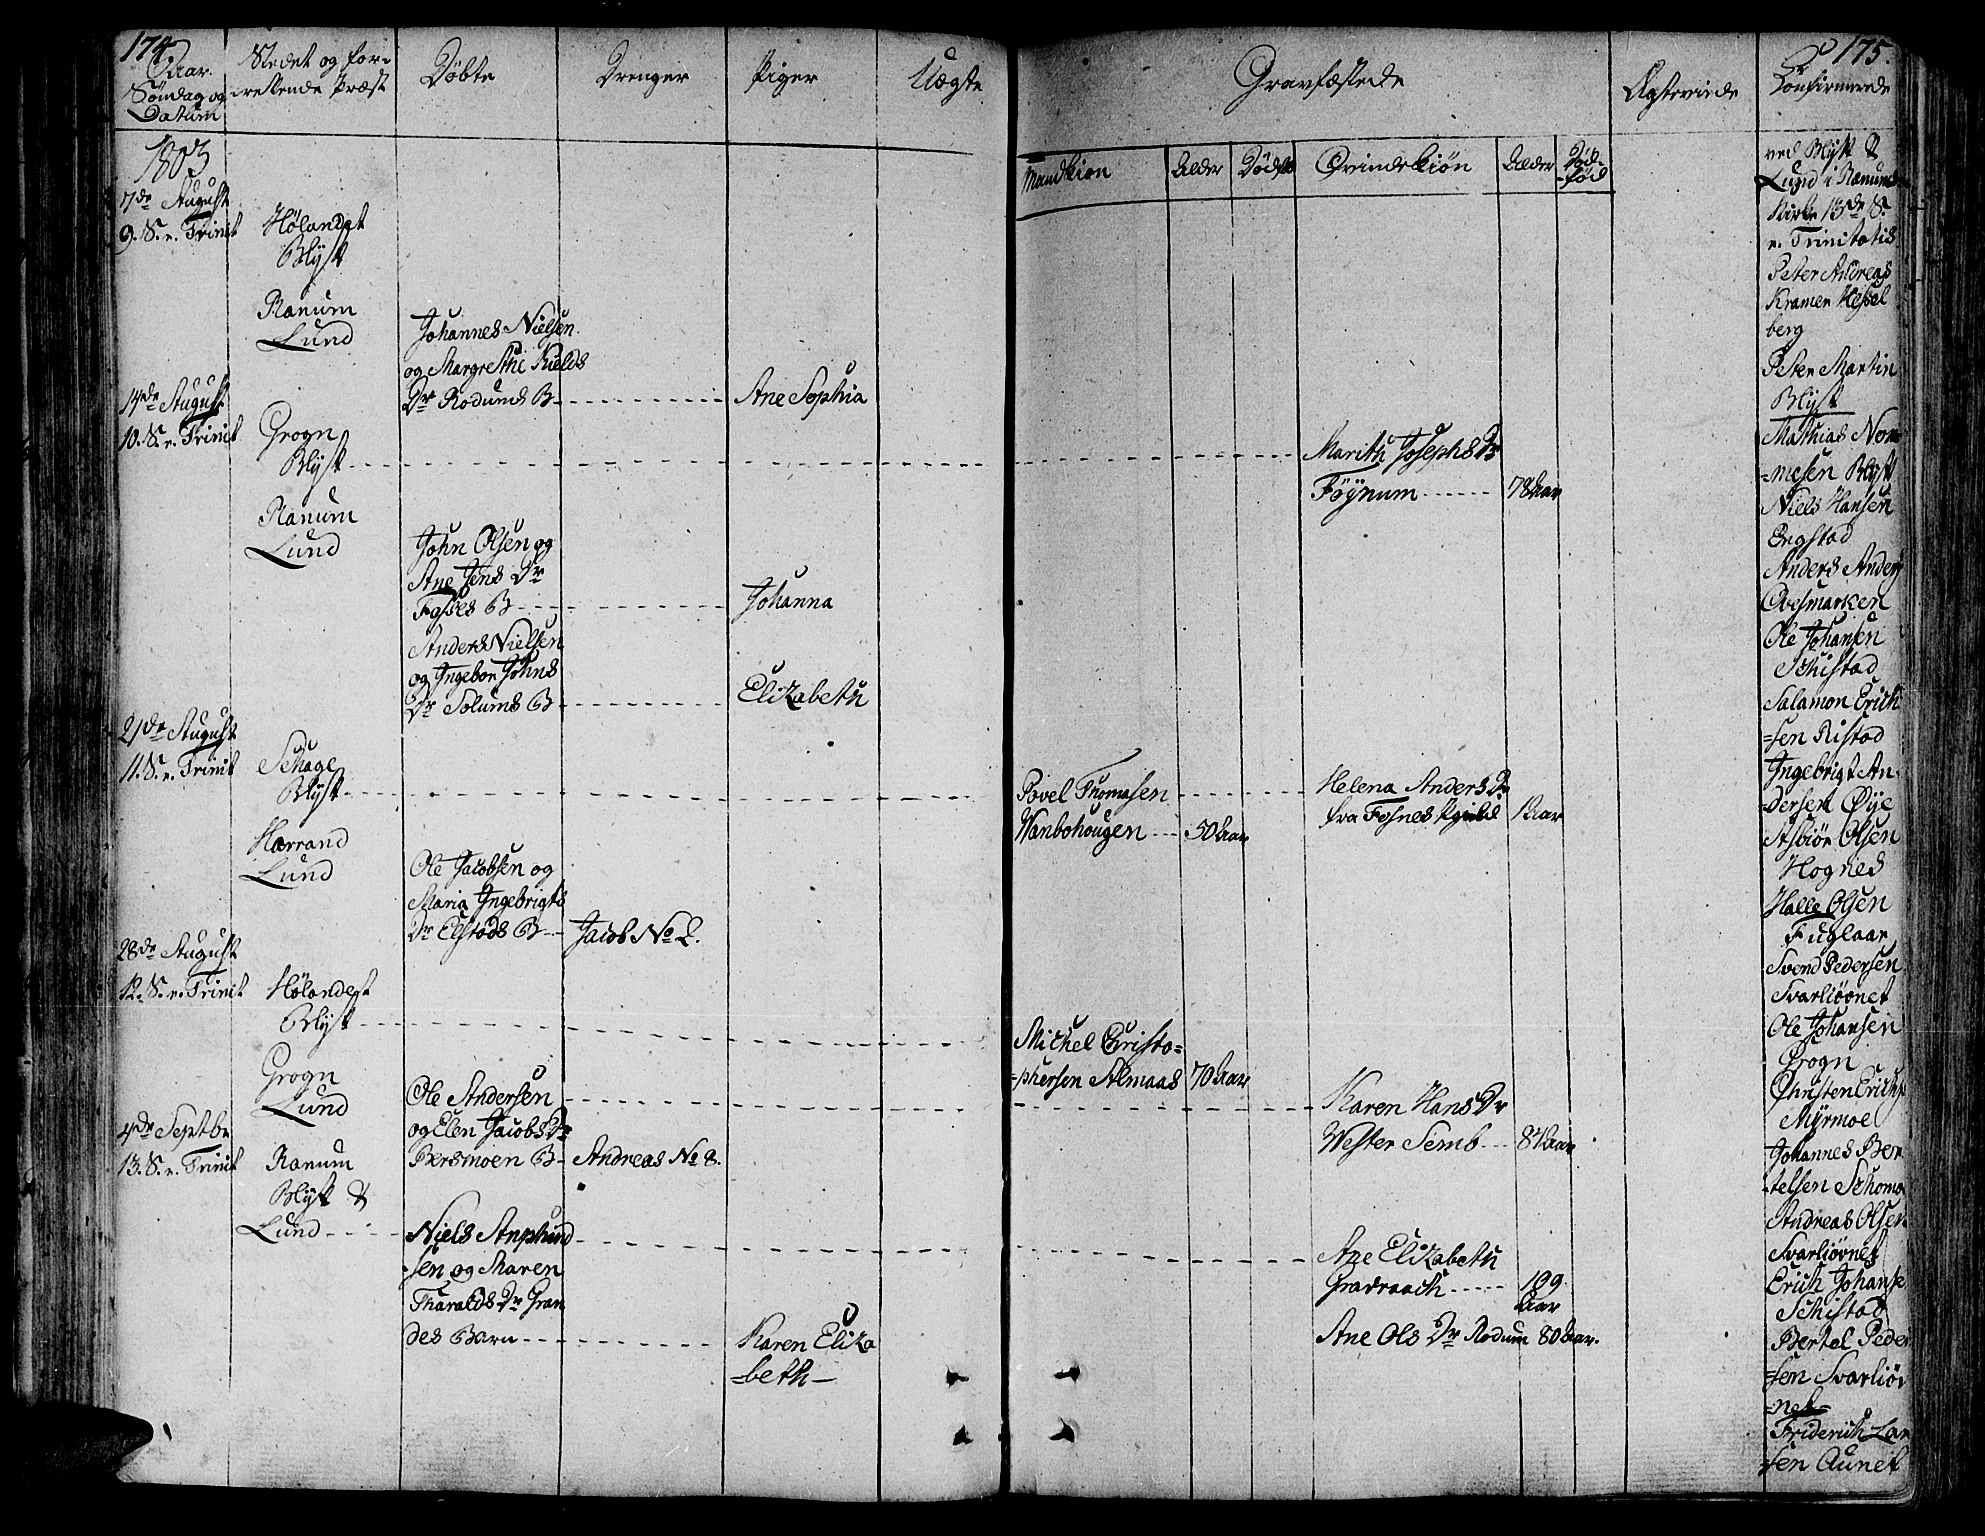 174
Aar.
Søndag og
Datum
Stedet og for-
rettende Præst
Døbte
Drenger
Piger
Uægte
1803
7de August
9. S. e. Trinit
Hølandet
Blyst
Ranum
Lund
Johannes Nielsen
og Margrethe Kields
Dr Rodums B
Ane Sophia
14de August
10. S. e. Trinit
Grogn
Blyst
Ranum
Lund
John Olsen og
Ane Jens Dr
Fosses B
Johanna
Anders Nielsen
og Ingebor Johns
Dr Solums B
Elizabeth
21de August
11. S. e. Trinit
Schage
Blyst
Harrand
Lund
Ole Jacobsen og
Maria Ingebrigts
Dr Elstads B
Jacob No 2.
28de August
12. S. e. Trinit
Hølandet
Blyst
Grogn
Lund
Ole Andersen
og Elen Jacobs Dr
Bersmoen B
Andreas No 8.
4de Septbr
13. S. e. Trinit
Ranum
Blyst &
Lund
Niels Amphind
sen og Maren
Tharalds Dr Gran
des Barn
Karen Eliza
=beth
175.
Gravfæstede
Ægteviede
Confirmerede
Mandkiøn
Alder
Dødf
Qvindekiøn
Alder
Død-
fød
Marith Josephs Dr
Føynum
78 Aar
Povel Thomasen
Wanbohougen
50 Aar
Helena Anders Dr
fra Fosnes Pgield
1 Aar
Michel Christo=
=phersen Almaas
70 Aar
Karen Hans Dr
Wester Semb
84 Aar
Ane Elizabeth
Gradraach
109
Aar
Ane Ols Dr Rodum 80 Aar.
ved Blyst &
Lund i Ranums
Kirke 13de S.
e. Trinitatis
Peter Andreas
Kramer Hessel
berg
Peter Martin
Blyst
Mathias Nom
=mesen Blyst
Niels Hansen
Engstad
Anders Anders
Ovesmarken
Ole Johansen
Schistad
Salamon Erich
=sen Ristad
Ingebrigt An-
dersen Øye
Asbiør Olsen
Hognes
Halle Olsen
Fuglaar
Svend Pedersen
Svarliøvnet
Ole Johansen
Grogn
Christen Erichs
Myrmoe
Johannes Ber
telsen Schomo
Andreas Olsen
Svarliøvnet
Erich Johans
Schistad
Bertel Peder
=sen Svarliøv
=net
Friderich Lar
=sen Aunet